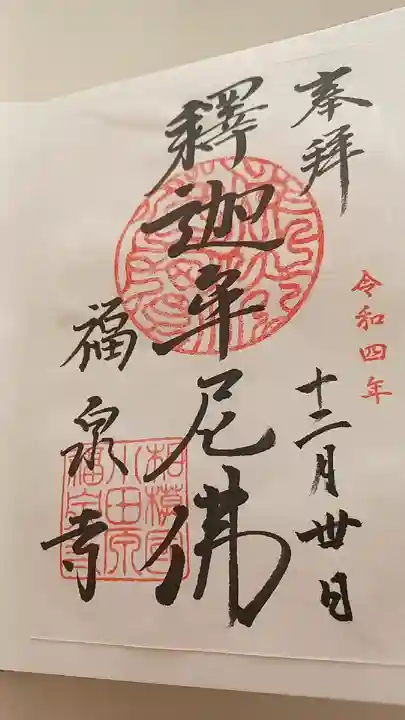 奉拝
令和四年
十二月丗日
釋迦牟尼佛
福泉寺
相模国
小田原
福泉寺